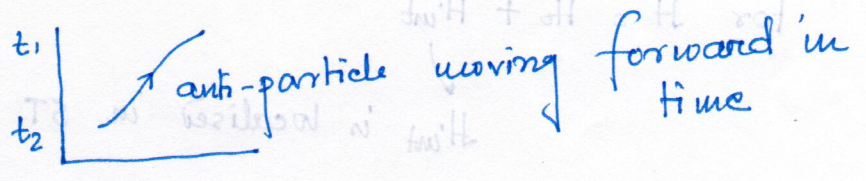 t₁
anti-particle moving forward in
time
t₂